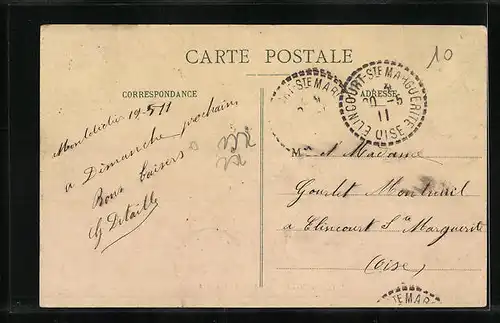 CARTE POSTALE
10
CORRESPONDANCE
ADRESSE
ELINCOURT-STE MARGUERITE
20 -5
11
OISE
STE MAR
TE MAR
19-5-11
a Dimanche prochain
Bons baisers
Mr et Madame
Gourlet Montreuil
a Elincourt Ste Marguerite
(Oise)